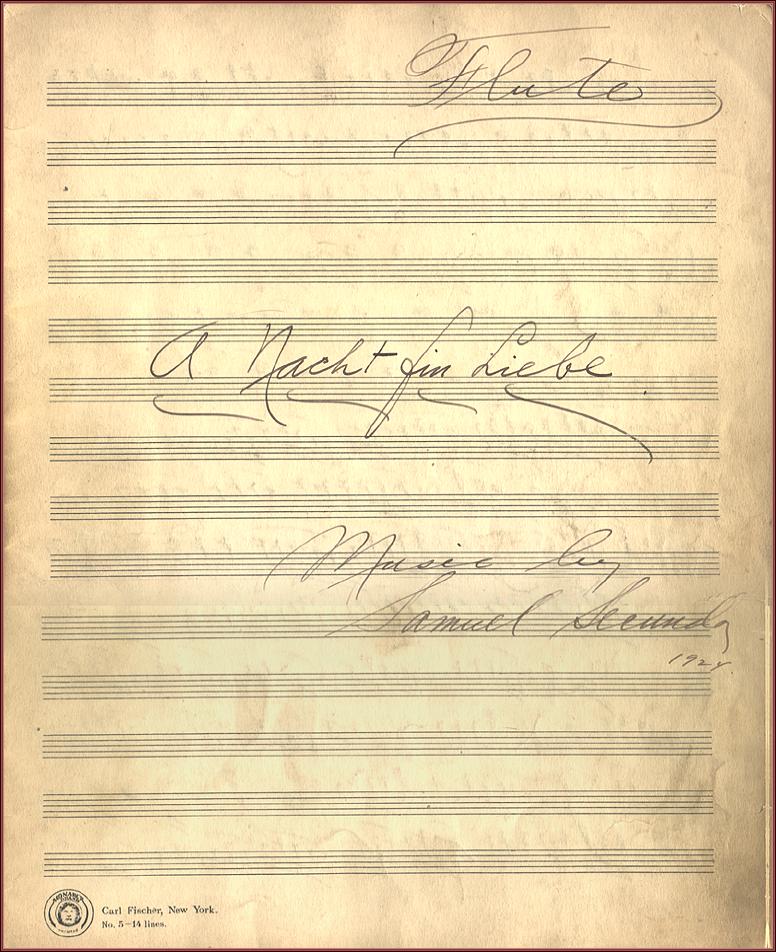 Flute
A Nacht fin Liebe.
Music by
Samuel Secunda
1924.
Carl Fischer, New York.
No. 5–14 lines.